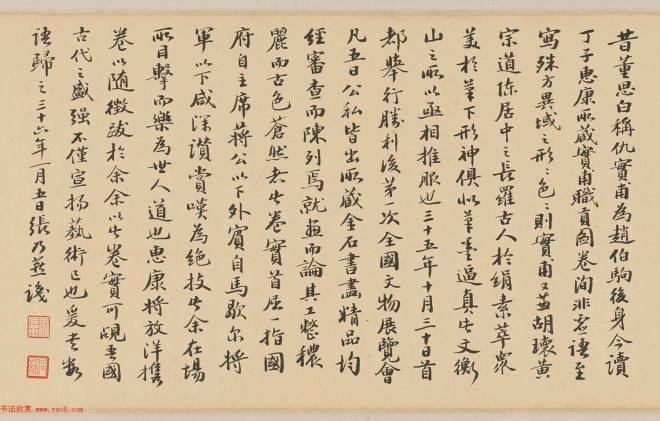 昔董思白稱仇實甫為趙伯駒後身今讀
丁子惠康所藏實甫職貢圖卷洵非虛語至
寫殊方異域之形形色色則實甫又並胡瓌黃
宗道陳居中之長羅古人於絹素萃眾
美於筆下形神俱似筆墨逼真此文衡
山之所以亟相推服也三十五年十月三十日首
都舉行勝利後第一次全國文物展覽會
凡五日公私皆出所藏金石書畫精品均
經審查而陳列焉就畫而論其工整穠
麗而古色蒼然者此卷實首屈一指國
府自主席蔣公以下外賓自馬歇尔將
軍以下咸深讚賞嘆為絕技此余在場
所目擊而樂為世人道也惠康將放洋攜
卷以隨徵跋於余余以此卷實可覘吾國
古代之盛強不僅宣揚藝術已也爰書數
語歸之三十六年一月五日張乃燕識
书法欣赏 www.yac8.com